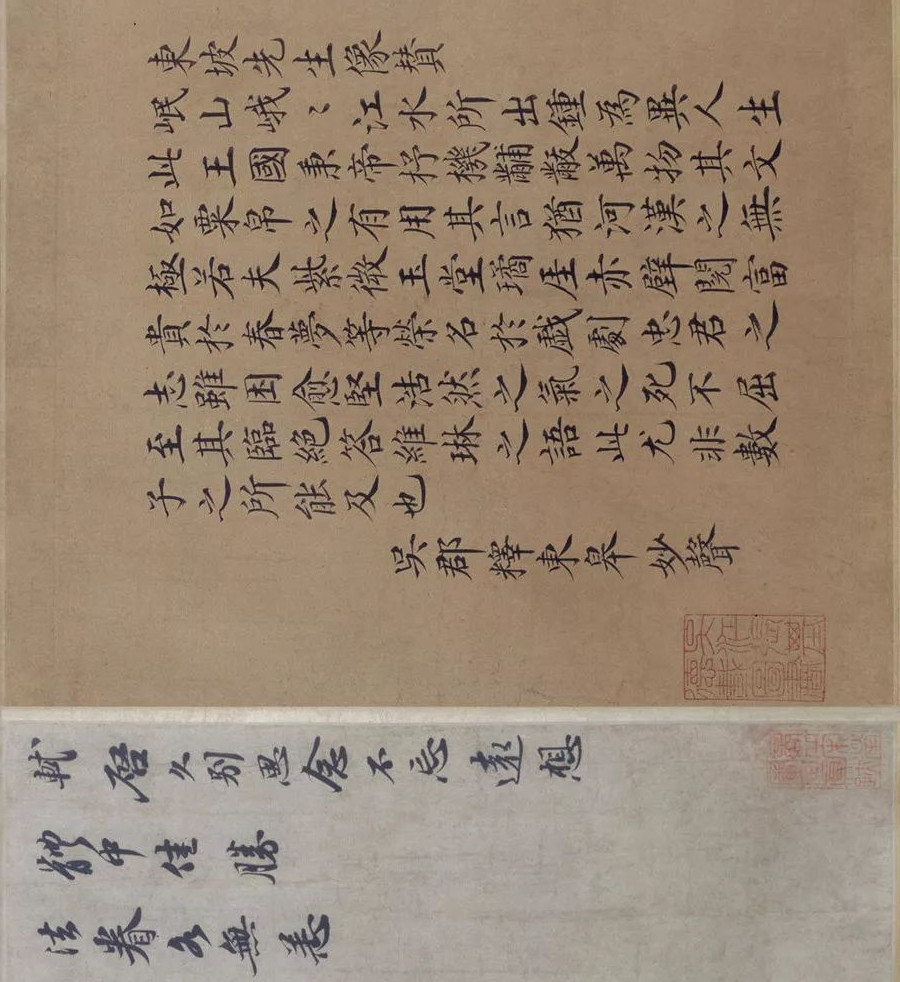 東坡先生像賛
岷山峨〻江水所出鍾為異人生
此王國秉帝杼機黼黻萬物其文
如粟帛之有用其言猶河漢之無
極若夫紫微玉堂瓊厓赤壁閱富
貴於春夢等榮名於戲劇忠君之
志雖困愈堅浩然之氣之死不屈
至其臨絕答維琳之語此尤非數
子之所能及也
吳郡釋東皋妙聲
軾啓久別思念不忘遠想
體中佳勝
法眷各無恙